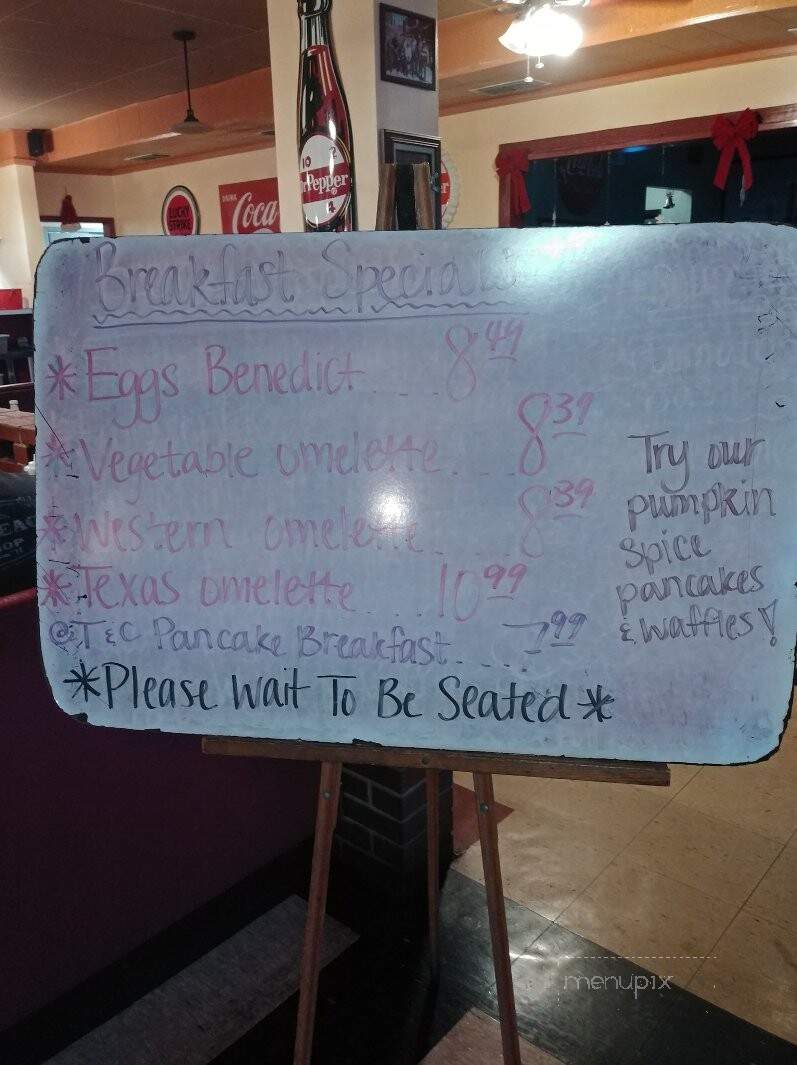 10 2
Dr Pepper
4
LUCKY STRIKE
DRINK
Coca
Breakfast Specials
*Eggs Benedict.... 8.49
*Vegetable omelette.... 8.39
*Western omelette.... 8.39
*Texas omelette.... 10.99
@T&C Pancake Breakfast.... 7.99
*Please Wait To Be Seated*
Try our
pumpkin
spice
pancakes
& waffles!
menupix